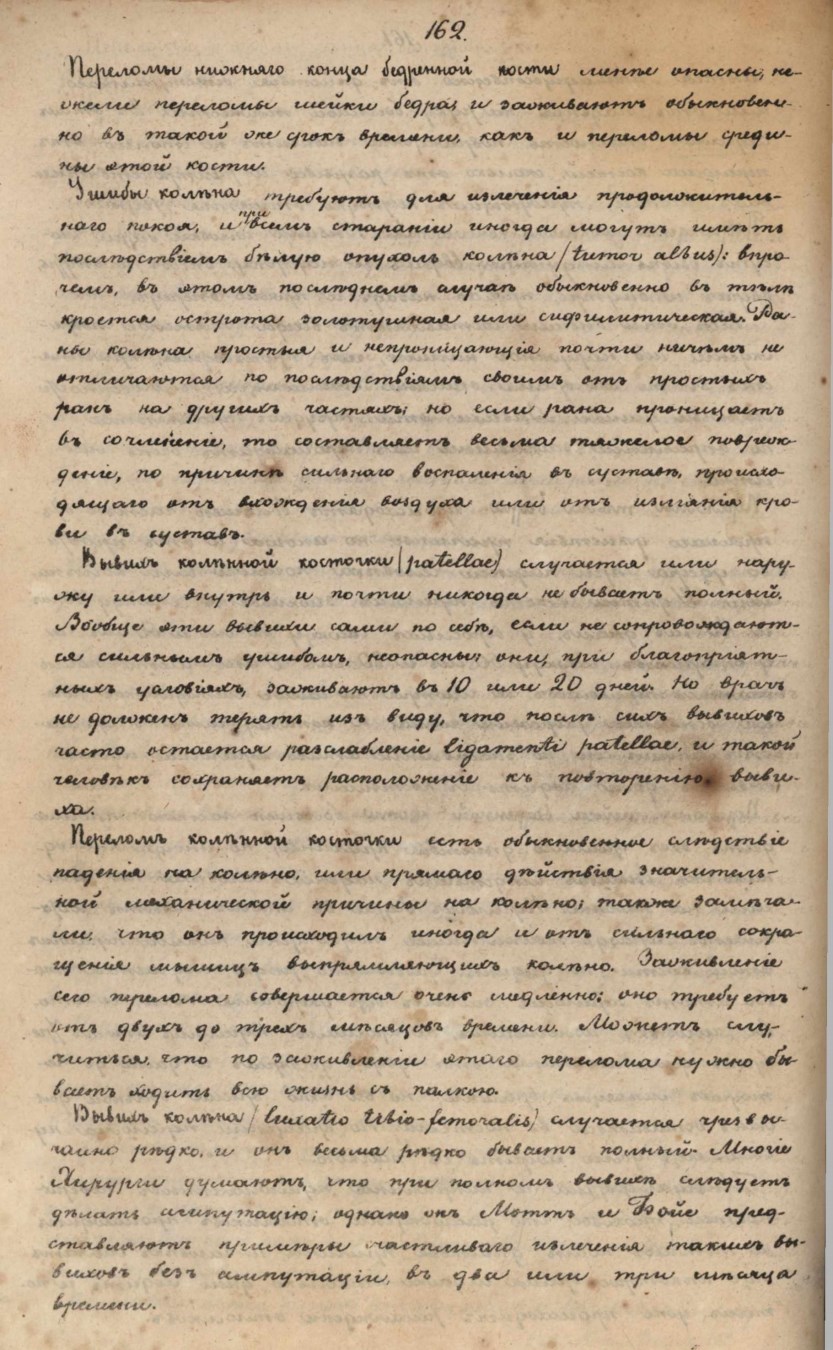 162.
Переломы нижняго конца бедренной кости менѣе опасны, не-
жели переломы шейки бедра; и заживаютъ обыкновен-
но въ такой же срокъ времени, какъ и переломы среди-
ны этой кости.
Ушибы колѣна требуютъ для излеченія продолжитель-
наго покоя, и при всемъ стараніи иногда могутъ имѣть
послѣдствіемъ бѣлую опухоль колѣна (tumor albus): впро-
чемъ, въ этомъ послѣднемъ случаѣ обыкновенно въ тѣлѣ
кроется острота золотушная или сифилитическая. Ра-
ны колѣна простыя и непроницающія почти ничѣмъ не
отличаются по послѣдствіямъ своимъ отъ простыхъ
ранъ на другихъ частяхъ; но если рана проницаетъ
въ сочлененіе, то составляетъ весьма тяжелое повреж-
деніе, по причинѣ сильнаго воспаленія въ суставѣ, происхо-
дящаго отъ вхожденія воздуха или отъ изліянія кро-
ви въ суставъ.
Вывихъ колѣнной косточки (patellae) случается или нару-
жу или внутрь и почти никогда не бываетъ полный.
Вообще эти вывихи сами по себѣ, если не сопровождают-
ся сильнымъ ушибомъ, неопасны; они, при благопріят-
ныхъ условіяхъ, заживаютъ въ 10 или 20 дней. Но врачъ
не долженъ терять изъ виду, что послѣ сихъ вывиховъ
часто остается разслабленіе ligamenti patellae, и такой
человѣкъ сохраняетъ расположеніе къ повторенію выви-
ха.
Переломъ колѣнной косточки есть обыкновенное слѣдствіе
паденія на колѣно, или прямаго дѣйствія значитель-
ной механической причины на колѣно; также замѣча-
ли, что онъ происходилъ иногда и отъ сильнаго сокра-
щенія мышицъ выпрямляющихъ колѣно. Заживленіе
сего перелома совершается очень медленно; оно требуетъ
отъ двухъ до трехъ мѣсяцовъ времени. Можетъ слу-
читься, что по заживленіи этаго перелома нужно бы-
ваетъ ходить всю жизнь съ палкою.
Вывихъ колѣна (luxatio tibio-femoralis) случается чрезвы-
чайно рѣдко, и онъ весьма рѣдко бываетъ полный. Многіе
Хирурги думаютъ, что при полномъ вывихѣ слѣдуетъ
дѣлать ампутацію; однако жъ Моттъ и Бойе пред-
ставляютъ примѣры счастливаго излеченія такихъ вы-
виховъ безъ ампутаціи, въ два или три мѣсяца
времени.